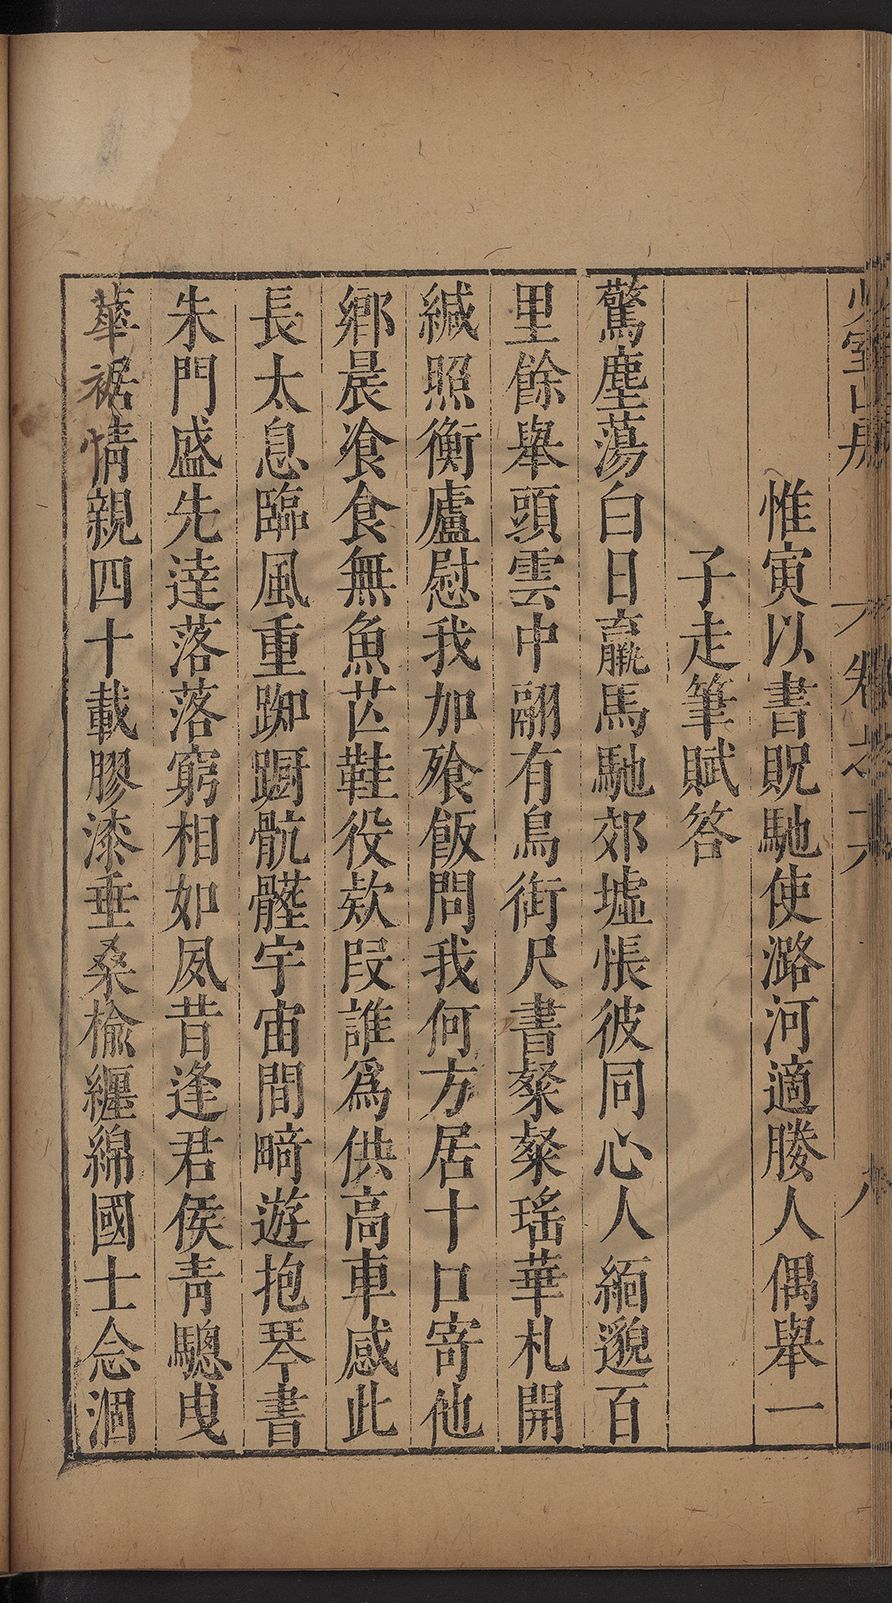 少室山房
卷之十六
八
惟寅以書貺馳使潞河適媵人偶舉一
子走筆賦答
驚塵蕩白日羸馬馳郊墟悵彼同心人緬邈百
里餘舉頭雲中翮有鳥銜尺書粲粲瑤華札開
緘照衡廬慰我加飱飯問我何方居十口寄他
鄉晨飡食無魚芒鞋役欵段誰爲供高車感此
長太息臨風重踟躕骯髒宇宙間畸遊抱琴書
朱門盛先達落落窮相如夙昔逢君侯青驄曳
華裾情親四十載膠漆垂桑榆纏綿國士念涸